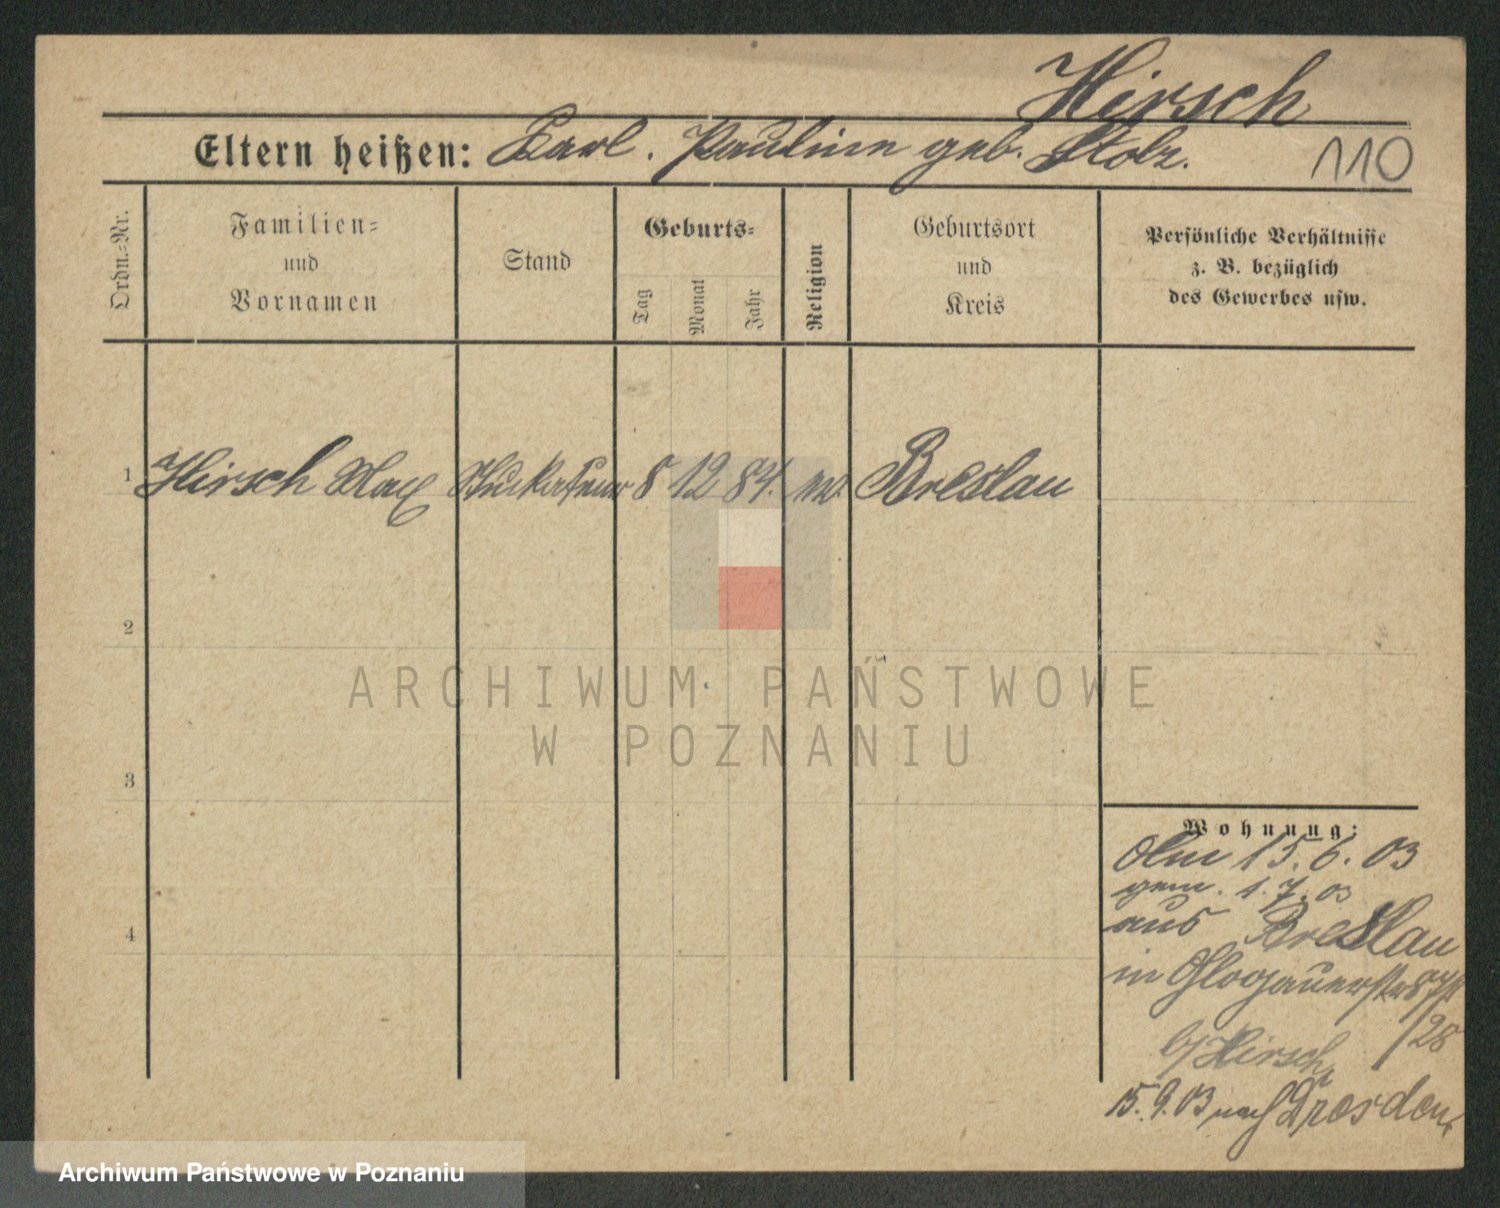 Hirsch
Eltern heißen: Karl. Pauline geb. Stolz.
110
Ordn.-Nr.
Familien-
und
Vornamen
Stand
Geburts-
Tag
Monat
Jahr
Religion
Geburtsort
und
Kreis
Persönliche Verhältnisse
z. B. bezüglich
des Gewerbes usw.
1 Hirsch Max Stuckateur 8 12 84. Breslau
2
3
4
ARCHIWUM PAŃSTWOWE
W POZNANIU
Wohnung:
15. 6. 03
gem. 1. 7. 03
aus Breslau
in Glogauerstr
28
b/ Hirsch
15. 9. 03 nach Dresden
Archiwum Państwowe w Poznaniu